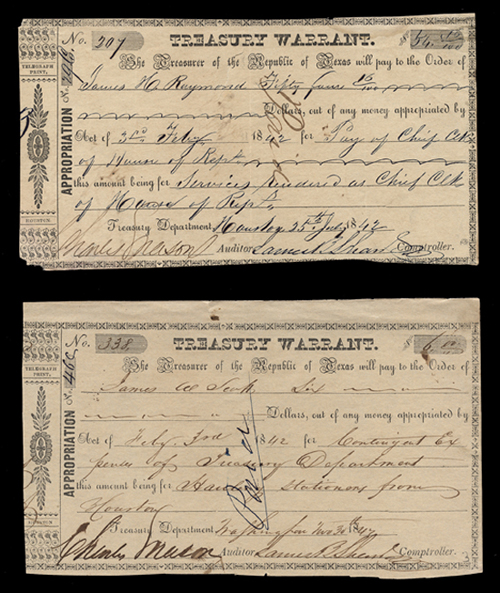 No. 207 TREASURY WARRANT. $ 54 15/100
The Treasurer of the Republic of Texas will pay to the Order of
James H Raymond Fifty four 15/100
Dollars, out of any money appropriated by
Act of 3rd Feby 1842 for Pay of Chief Clk
of House of Reps
this amount being for Services rendered as Chief Clk
of House of Reps
Treasury Department, Houston 25th July 1842
Charles Mason Auditor Samuel P. Shaw Comptroller.
APPROPRIATION No.
TELEGRAPH
PRINT,
HOUSTON
No. 338 TREASURY WARRANT. $ 6 00
The Treasurer of the Republic of Texas will pay to the Order of
James W Scott Six
Dollars, out of any money appropriated by
Act of Feby 3rd 1842 for Contingent Ex
penses of Treasury Department
this amount being for Stationery from
Houston
Treasury Department, Washington Nov 30th 1842
Charles Mason Auditor Samuel P. Shaw Comptroller.
APPROPRIATION No. 460
TELEGRAPH
PRINT,
HOUSTON